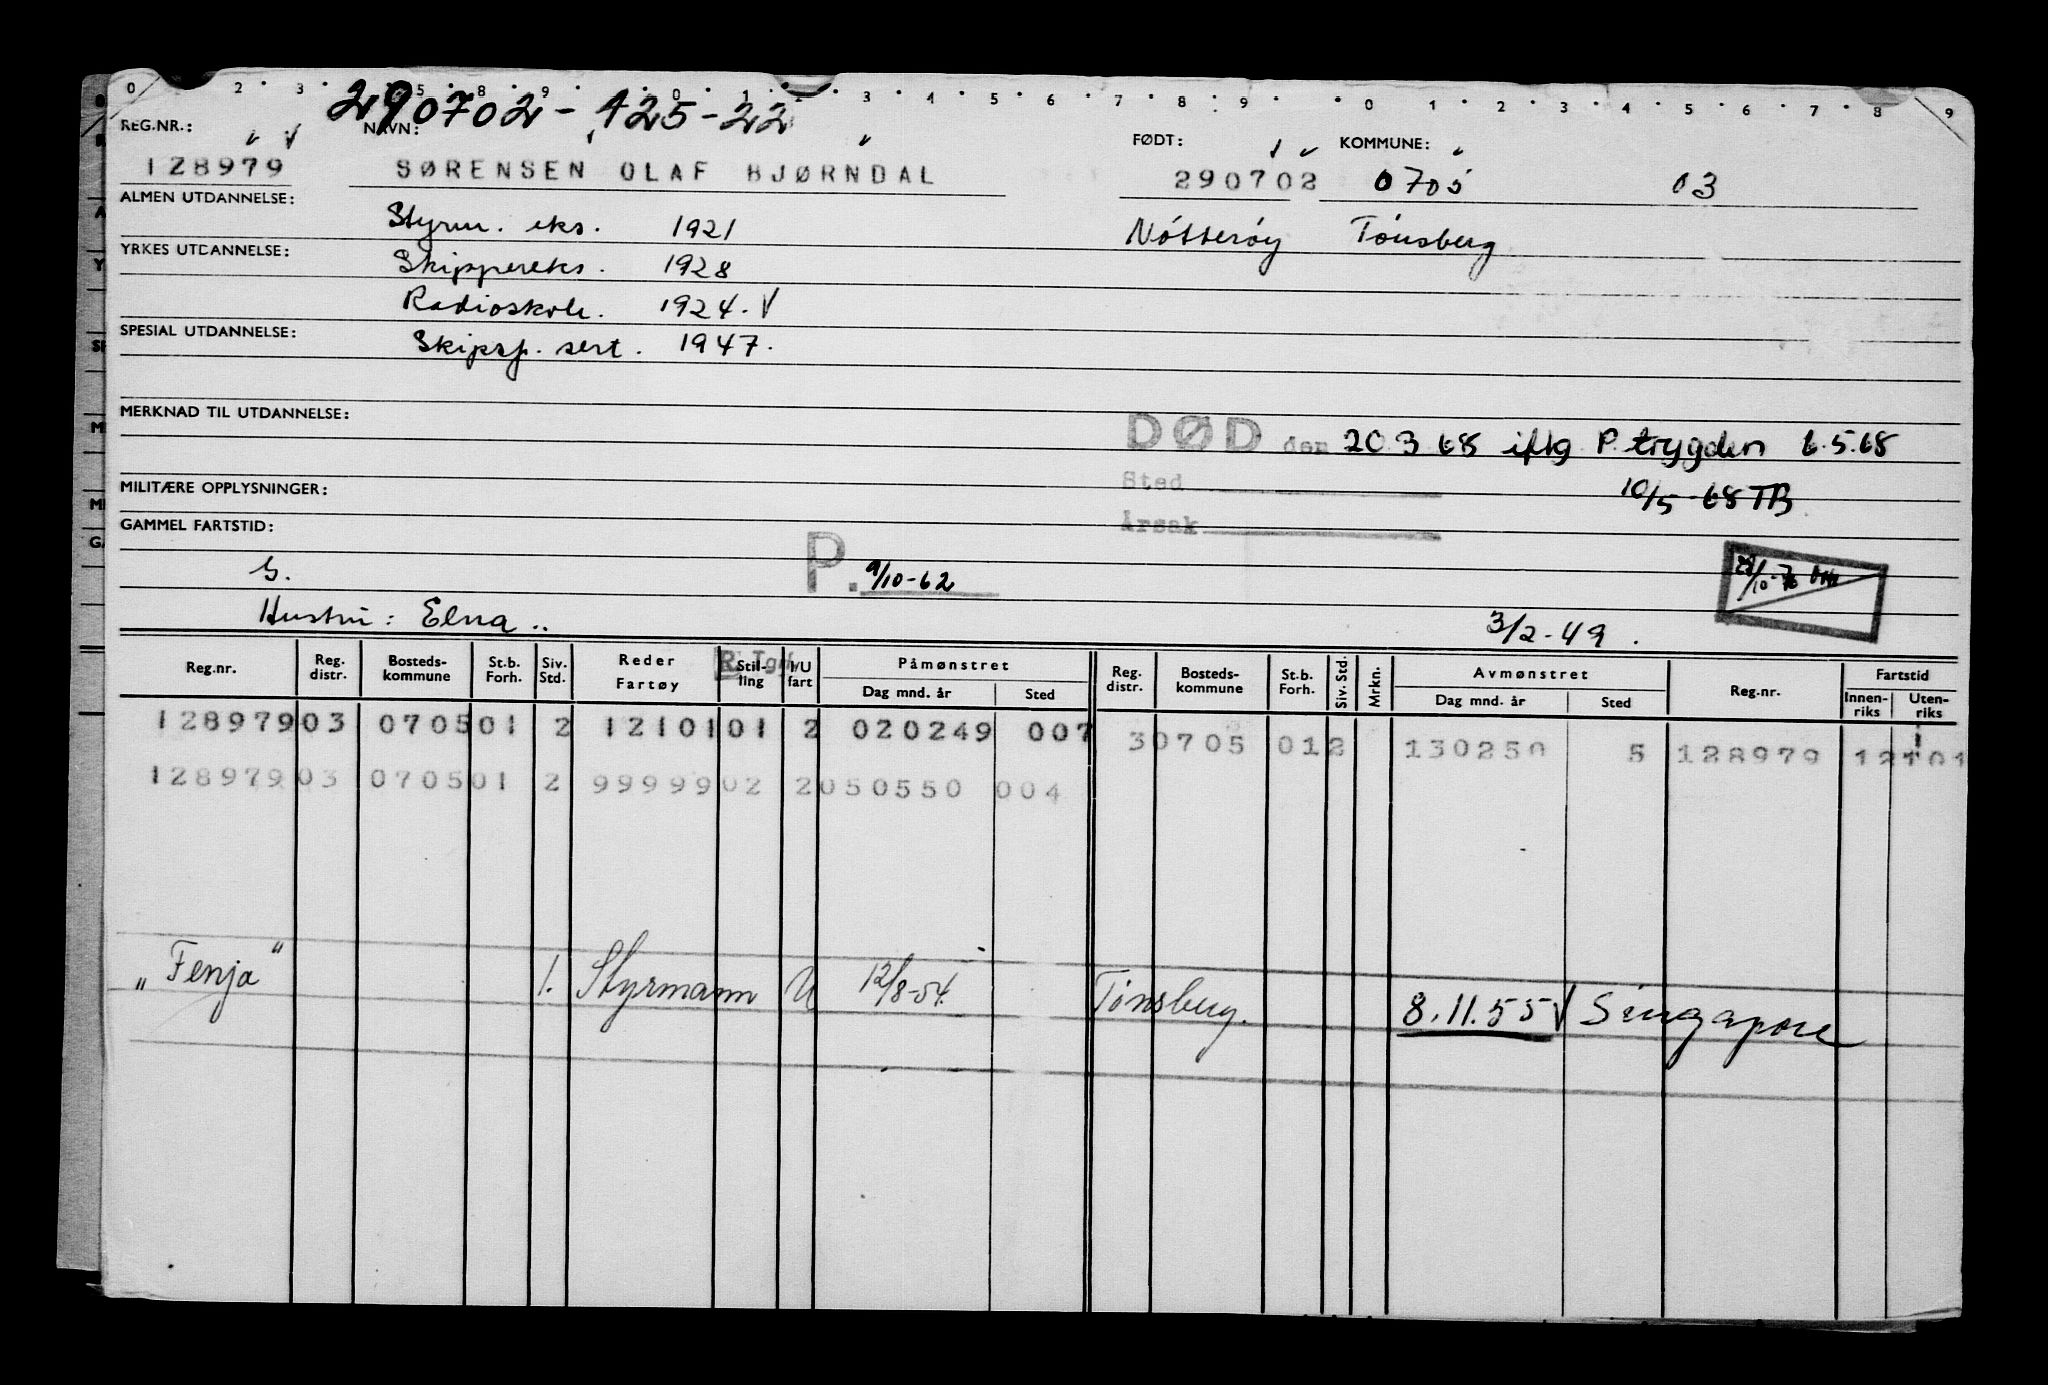 0 2 3 5 8 9 0 1 3 4 5 6 7 8 9 0 1 2 3 4 5 6 7 8 9
290702-125-22
REG.NR.: NAVN: FØDT: KOMMUNE:
128979 SØRENSEN OLAF BJØRNDAL 290702 0705 03
ALMEN UTDANNELSE: Styrm. eks. 1921 Nötterøy Tönsberg
YRKES UTDANNELSE: Skippereks. 1928
Radioskole. 1924. V
SPESIAL UTDANNELSE: Skipsf. sert. 1947.
MERKNAD TIL UTDANNELSE:
DØD den 20.3.68 iflg P.trygden 6.5.68
MILITÆRE OPPLYSNINGER: Sted 10/5-68 TB
GAMMEL FARTSTID: Årsak
G. P. 9/10-62
Hustru: Elna .. 3/2-49.
Reg.nr. Reg. distr. Bosteds-kommune St.b. Forh. Siv. Std. Reder Fartøy Stil-ling I/U fart Påmønstret Dag mnd. år Sted Reg. distr. Bosteds-kommune St.b. Forh. Siv. Std. Mrkn. Avmønstret Dag mnd. år Sted Reg.nr. Fartstid Innen-riks Uten-riks
128979 03 0705 01 2 12101 01 2 020249 007 3 0705 01 2 130250 5 128979 12101
128979 03 0705 01 2 99999 02 2 050550 004
"Fenja" 1. Styrmann U 12/8-54. Tönsberg. 8.11.55 V Singapore